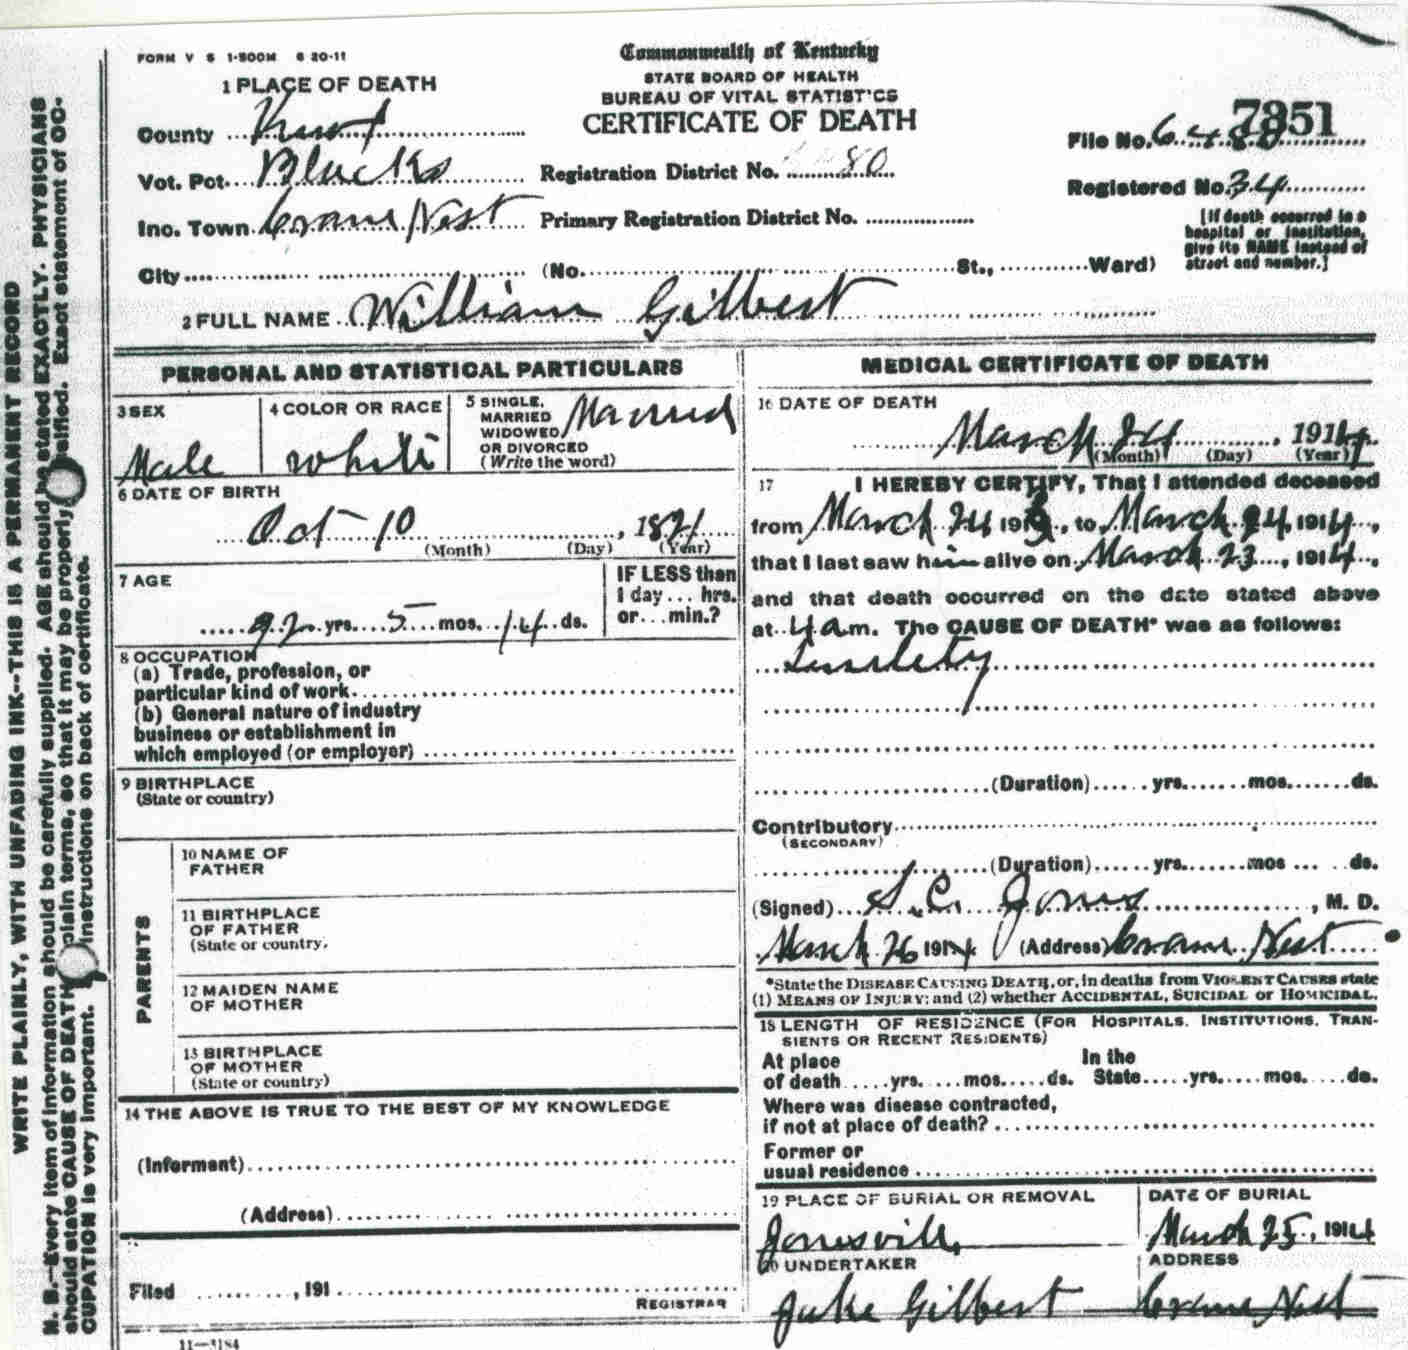 FORM V S 1-500M 6 20-11
Commonwealth of Kentucky
STATE BOARD OF HEALTH
BUREAU OF VITAL STATIST'CS
CERTIFICATE OF DEATH
1 PLACE OF DEATH
County Knox
Vot. Pct. Blacks
Inc. Town Crane Nest
City (No. St., Ward)
Registration District No. 80
Primary Registration District No.
7351
File No.
Registered No. 34
[If death occurred in a
hospital or institution,
give its NAME instead of
street and number.]
2 FULL NAME William Gilbert
PERSONAL AND STATISTICAL PARTICULARS
3 SEX
Male
4 COLOR OR RACE
white
5 SINGLE,
MARRIED
WIDOWED
OR DIVORCED
(Write the word)
Married
6 DATE OF BIRTH
Oct 10, 1821
(Month) (Day) (Year)
7 AGE
92 yrs. 5 mos. 14 ds.
IF LESS than
1 day ... hrs.
or ... min.?
8 OCCUPATION
(a) Trade, profession, or
particular kind of work
(b) General nature of industry
business or establishment in
which employed (or employer)
9 BIRTHPLACE
(State or country)
PARENTS
10 NAME OF
FATHER
11 BIRTHPLACE
OF FATHER
(State or country.
12 MAIDEN NAME
OF MOTHER
13 BIRTHPLACE
OF MOTHER
(State or country)
14 THE ABOVE IS TRUE TO THE BEST OF MY KNOWLEDGE
(Informent)
(Address)
Filed , 191
REGISTRAR
11—3184
MEDICAL CERTIFICATE OF DEATH
16 DATE OF DEATH
March 24, 1914
(Month) (Day) (Year)
17 I HEREBY CERTIFY, That I attended deceased
from March 24 191, to March 24, 1914,
that I last saw him alive on March 23, 1914,
and that death occurred on the date stated above
at 4 am. The CAUSE OF DEATH* was as follows:
(Duration) yrs. mos. ds.
Contributory
(SECONDARY)
(Duration) yrs. mos ds.
(Signed) S.C. Jones, M. D.
March 26 1914 (Address) Crane Nest
*State the DISEASE CAUSING DEATH, or, in deaths from VIOLENT CAUSES state
(1) MEANS OF INJURY; and (2) whether ACCIDENTAL, SUICIDAL or HOMICIDAL.
18 LENGTH OF RESIDENCE (FOR HOSPITALS, INSTITUTIONS, TRAN-
SIENTS OR RECENT RESIDENTS)
At place In the
of death yrs. mos. ds. State yrs. mos. ds.
Where was disease contracted,
if not at place of death?
Former or
usual residence
19 PLACE OF BURIAL OR REMOVAL
Jonesville
DATE OF BURIAL
March 25, 1914
20 UNDERTAKER
Jake Gilbert
ADDRESS
Crane Nest
WRITE PLAINLY, WITH UNFADING INK--THIS IS A PERMANENT RECORD
N. B.—Every item of information should be carefully supplied. AGE should be stated EXACTLY. PHYSICIANS
should state CAUSE OF DEATH plain terms, so that it may be properly Exact statement of OC-
CUPATION is very important. instructions on back of certificate.